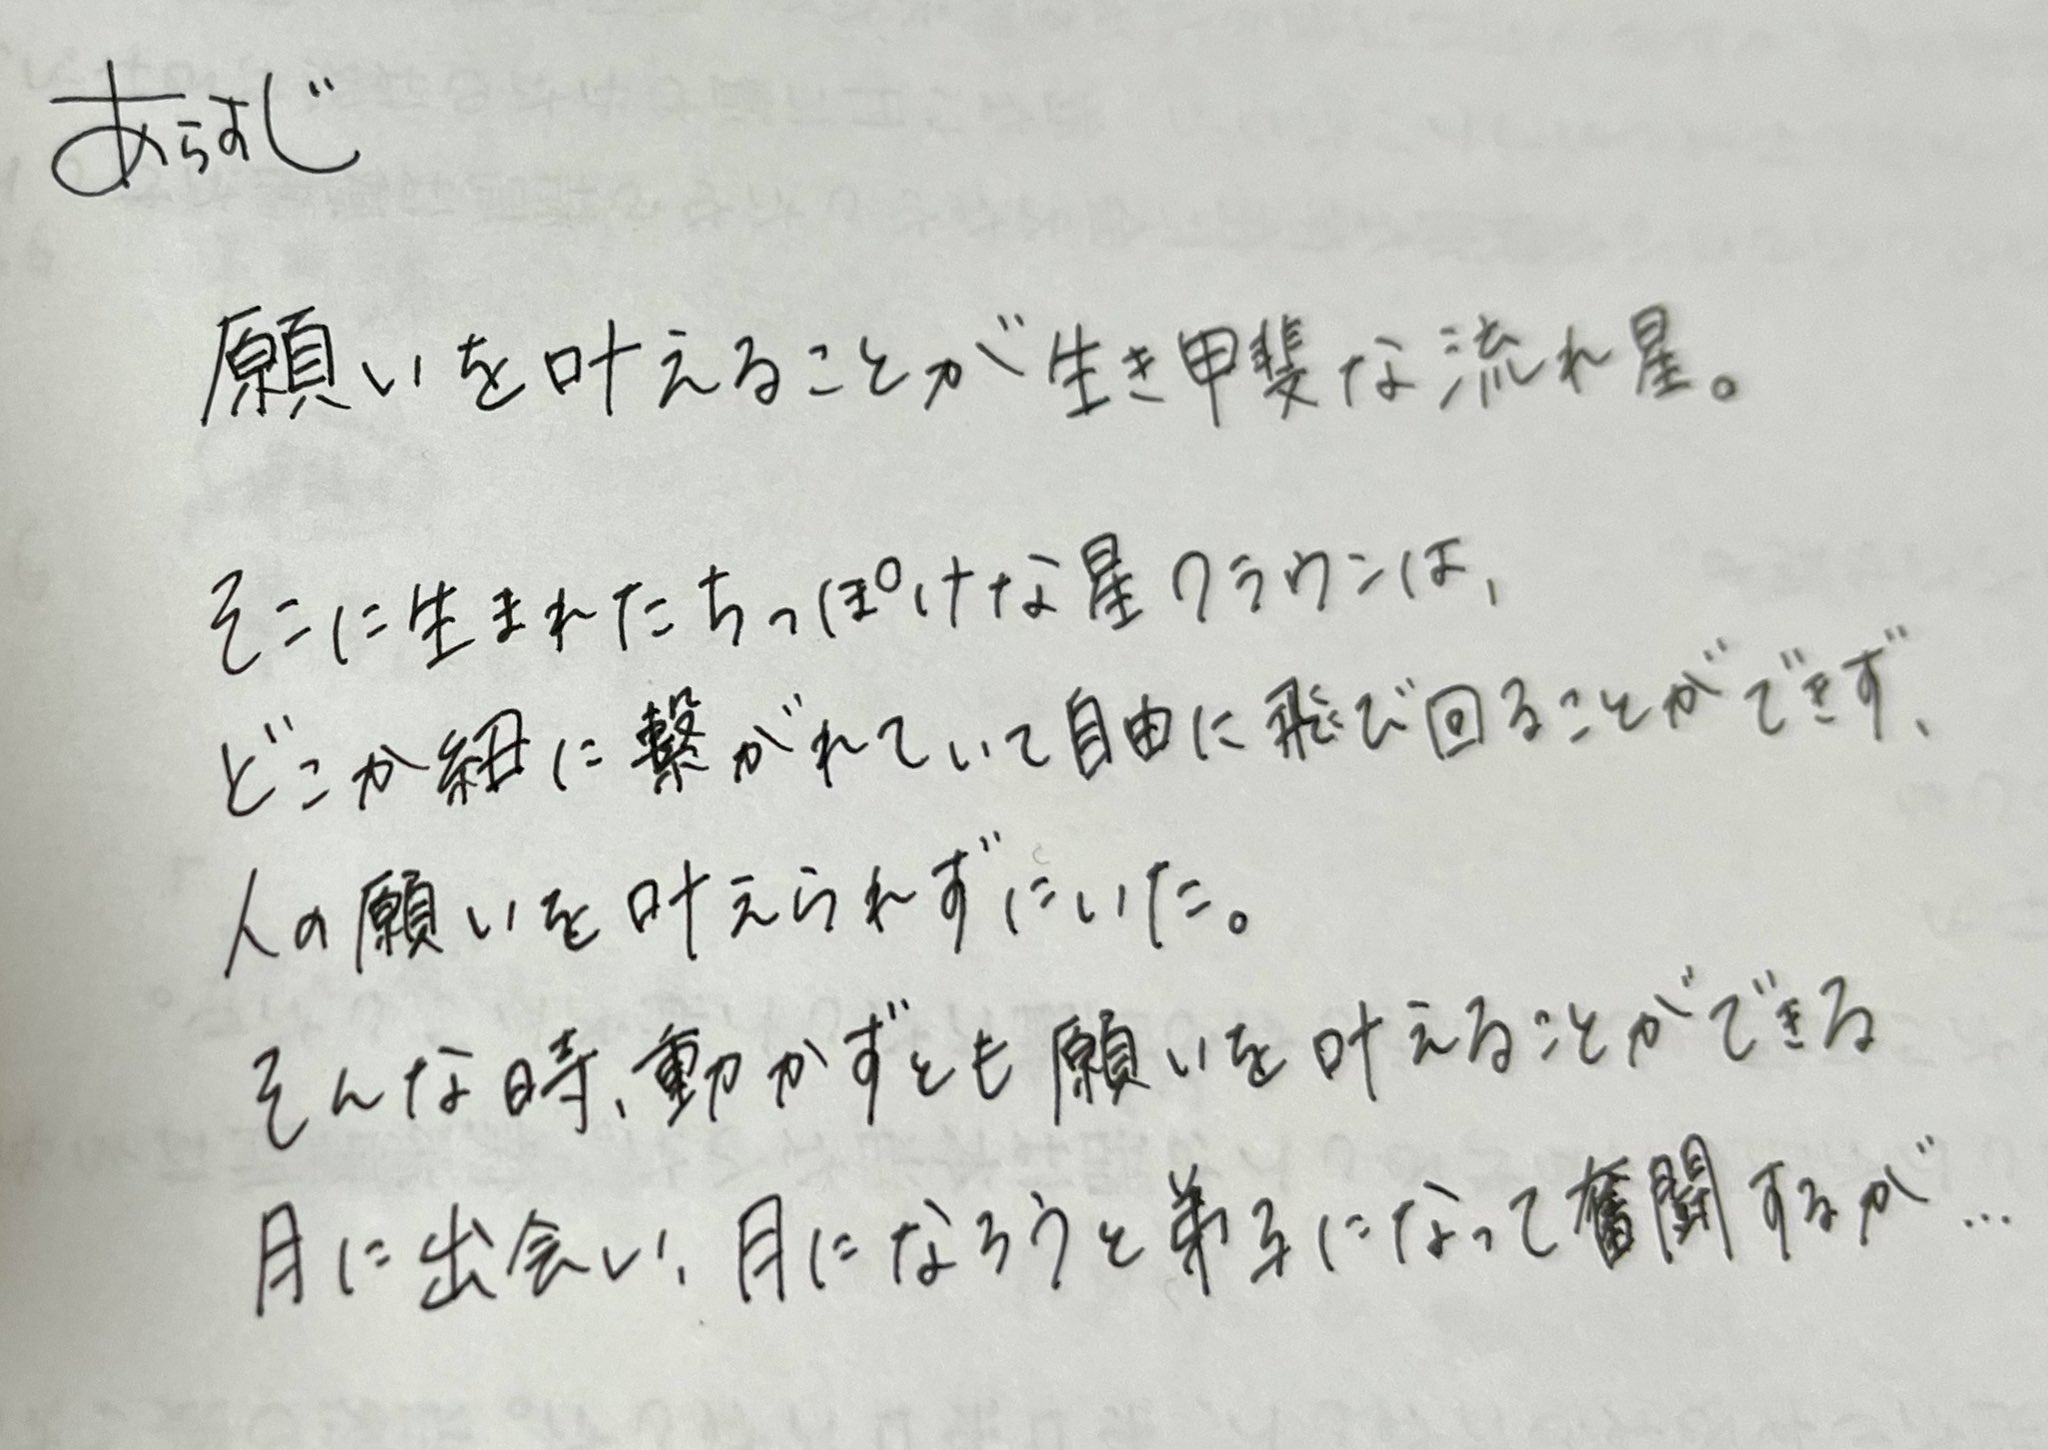 あらすじ
願いを叶えることが生き甲斐な流れ星。
そこに生まれたちっぽけな星クラウンは、
どこか紐に繋がれていて自由に飛び回ることができず、
人の願いを叶えられずにいた。
そんな時、動かずとも願いを叶えることができる
月に出会い、月になろうと弟子になって奮闘するが…